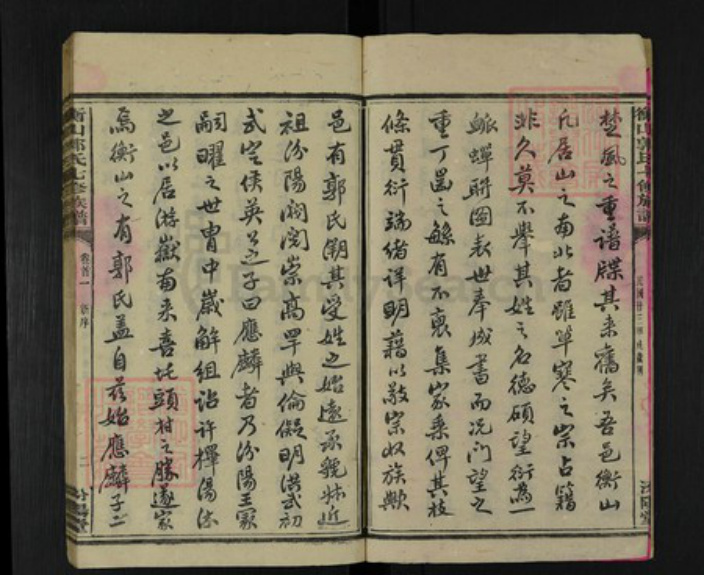 楚風之重譜牒其来舊矣吾邑衡山
凡居山之南北者雖單寒之宗占籍
非久莫不舉其姓之名德碩望衍為一
脈蟬聯圖表世奉成書而况门望之
重丁口之繇有不裒集家乘俾其枝
條貫衍端緒詳明藉以敬宗收族歟
邑有郭氏溯其受姓之始遠承虢林近
祖汾陽閥閱崇高罕與倫儗明洪武初
武定侯英之子曰應麟者乃汾陽王冢
嗣曜之世胄中嵗解组詒許擇湯沐
之邑以居游嶽南来喜圫頭村之勝遂家
焉衡山之有郭氏蓋自兹始應麟子二
衡山郭氏七修族譜
卷首一
新序
二
汾陽堂
FamilySearch